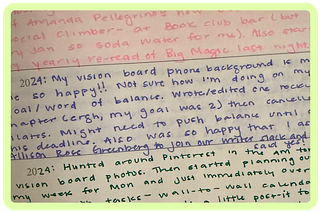 f Amanda Pellegrino's new
ocial Climber- at Book Club bar (but
ry Jan so soda water for me). Also star
y yearly re-read of Big Magic last night.
2024: My vision board phone background is m
e so happy!! Not sure how I'm doing on my
oal/word of balance. Wrote/edited one rock
hapter (ergh, my goal was 2) then cancelle
ilates. Might need to push balance until a
his deadline. Also was so happy that as
Allison Rose Greenberg to join our writer snack and
said yes!
2024: Hunted around Pinterest in the AM for
vision board photos. Then started planning ou
my week for Mon and just immediately over
tasks- wall-to-wall calenda
little post-it to